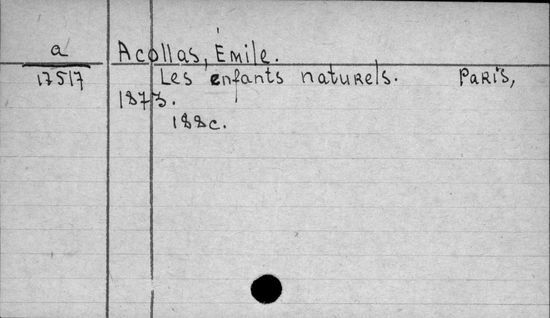 a
17517
Acollas, Émile.
Les enfants naturels. Paris,
1873.
188c.